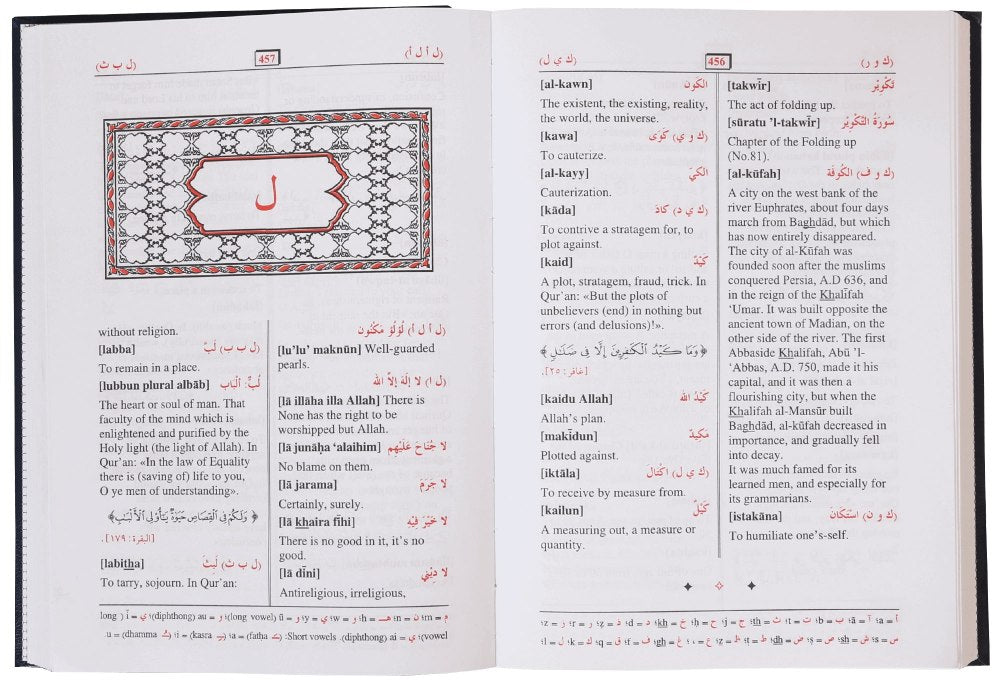 (ك و ر)
456
(ك ي ل)
[takwīr] تَكْوِيْر
The act of folding up.
[sūratu 'l-takwīr] سُورَةُ التَّكْوِيْر
Chapter of the Folding up
(No.81).
[al-kūfah] (ك و ف) الكُوفَة
A city on the west bank of the
river Euphrates, about four days
march from Baghdād, but which
has now entirely disappeared.
The city of al-Kūfah was
founded soon after the muslims
conquered Persia, A.D 636, and
in the reign of the Khalīfah
‘Umar. It was built opposite the
ancient town of Madian, on the
other side of the river. The first
Abbaside Khalifah, Abū 'l-
‘Abbas, A.D. 750, made it his
capital, and it was then a
flourishing city, but when the
Khalifah al-Mansūr built
Baghdād, al-kūfah decreased in
importance, and gradually fell
into decay.
It was much famed for its
learned men, and especially for
its grammarians.
[istakāna] (ك و ن) اسْتَكَانَ
To humiliate one’s-self.
[al-kawn] الكَون
The existent, the existing, reality,
the world, the universe.
[kawa] (ك و ي) كَوَى
To cauterize.
[al-kayy] الكَيّ
Cauterization.
[kāda] (ك ي د) كَادَ
To contrive a stratagem for, to
plot against.
[kaid] كَيْدٌ
A plot, stratagem, fraud, trick. In
Qur’an: «But the plots of
unbelievers (end) in nothing but
errors (and delusions)!».
﴿ وَمَا كَيْدُ الْكَٰفِرِينَ إِلَّا فِى ضَلَٰلٍ ﴾
[غافر: ٢٥].
[kaidu Allah] كَيْدُ الله
Allah’s plan.
[makīdun] مَكِيدٌ
Plotted against.
[iktāla] (ك ي ل) اكْتَالَ
To receive by measure from.
[kailun] كَيْلٌ
A measuring out, a measure or
quantity.
أ =a؛ آ =ā؛ ب =b؛ ت =t؛ ث =th؛ ج =j؛ ح =ḥ؛ خ =kh؛ د =d؛ ذ =ẓ؛ ر =r؛ ز =z؛
س =s؛ ش =sh؛ ص =ṣ؛ ض =dh؛ ط =ṭ؛ ظ =ẓ؛ ع =،؛ غ =gh؛ ف =f؛ ق =q؛ ك =k؛ ل =l؛
(ل أ ل أ)
457
(ل ب ث)
ل
(ل أ ل أ) لُؤْلُؤ مَكْنُون
[lu’lu’ maknūn] Well-guarded
pearls.
(ل ا) لا إلَهَ إلاَّ الله
[lā illāha illa Allah] There is
None has the right to be
worshipped but Allah.
[lā junāḥa ‘alaihim] لا جُنَاحَ عَلَيْهِم
No blame on them.
[lā jarama] لا جَرَمَ
Certainly, surely.
[lā khaira fīhi] لا خَيْرَ فِيْهِ
There is no good in it, it’s no
good.
[lā dīni] لا دِيْنِي
Antireligious, irreligious,
without religion.
[labba] (ل ب ب) لَبَّ
To remain in a place.
[lubbun plural albāb] لُبٌّ: ألْبَاب
The heart or soul of man. That
faculty of the mind which is
enlightened and purified by the
Holy light (the light of Allah). In
Qur’an: «In the law of Equality
there is (saving of) life to you,
O ye men of understanding».
﴿ وَلَكُمْ فِى الْقِصَاصِ حَيَوٰةٌ يَٰٓأُو۟لِى الْأَلْبَٰبِ ﴾
[البقرة: ١٧٩].
[labitha] (ل ب ث) لَبِثَ
To tarry, sojourn. In Qur’an:
م =m؛ ن =n؛ هـ =h؛ و =w؛ ي =y؛ و =ū (long vowel)؛ و =au (diphthong)؛ ي =ī (long
vowel)؛ ي =ai (diphthong). Short vowels: (fatha ـَ) =a؛ (kasra ـِ) =i؛ (dhamma ـُ) =u .